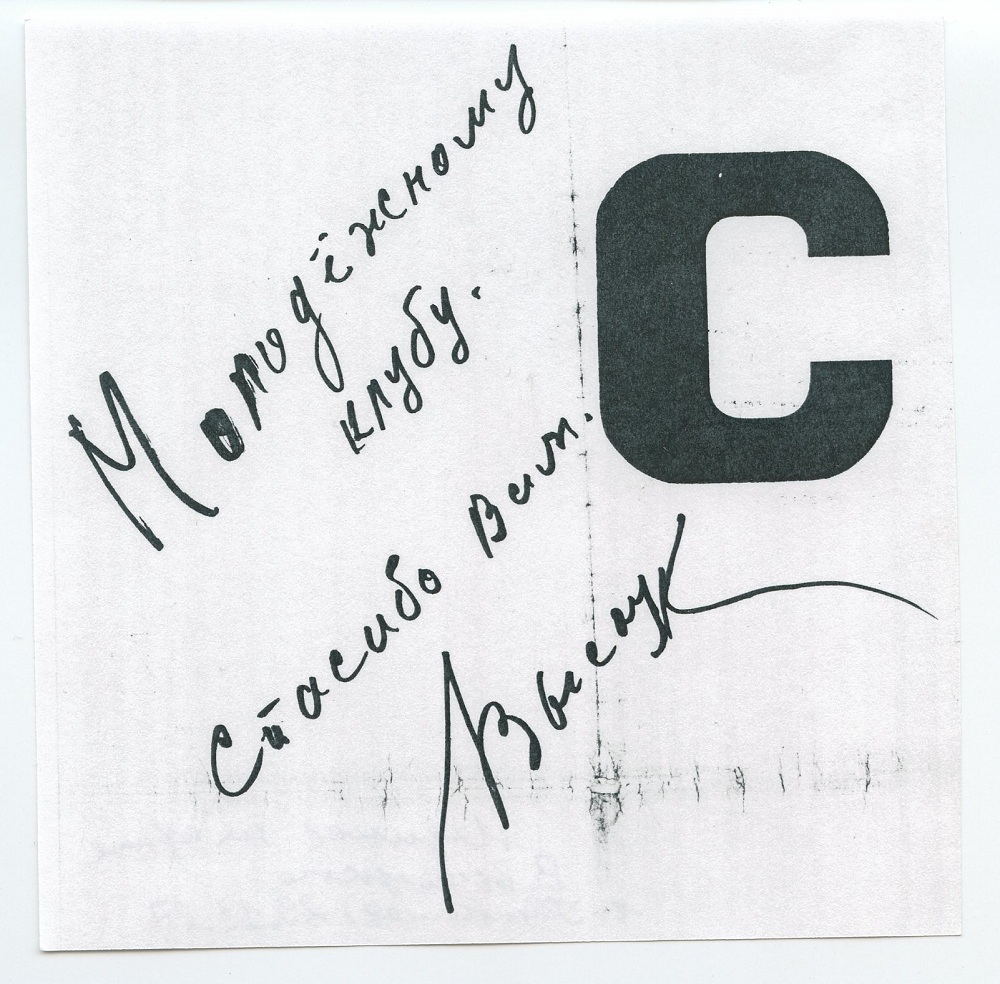 Молодёжному
клубу.
Спасибо Вам.
Высоцк
С